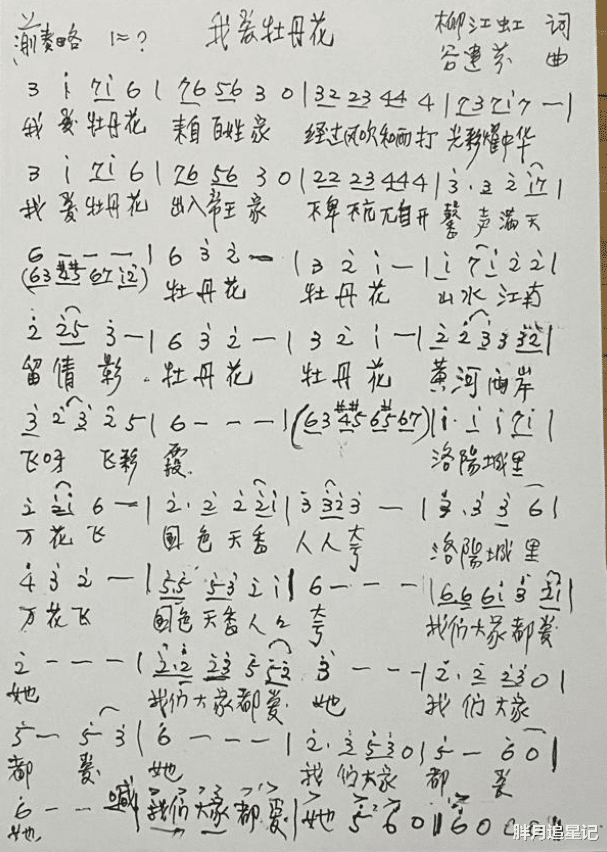 前奏略 1=? 我爱牡丹花 柳江虹 词
谷建芬 曲
3 i 7i 6 | 76 56 3 0 | 32 23 44 4 | 7371 7 - |
我爱牡丹花 来自百姓家 经过风吹和雨打 光彩耀中华
3 i 7i 6 | 76 56 3 0 | 22 23 444 | 3. 3 2 i7 |
我爱牡丹花 出入帝王家 不卑不亢自开 馨声满天
6 - - - | 6 3 2 - | 3 2 i - | i 7 i 2 2 |
(63 #4#5 67 i2) 牡丹花 牡丹花 山水江南
2 25 3 - | 6 3 2 - | 3 2 i - | 2 2 3 3 32 |
留倩影 牡丹花 牡丹花 黄河两岸
3 2 3 2 5 | 6 - - - | (63 #4#5 6#5 67) | i. i i 7i |
飞呀 飞彩 霞 洛陽城里
2 2i 6 - | 2. 2 2 2i | 3 323 - | 3. 3 3 6 |
万花飞 国色天香 人人夸 洛陽城里
4 3 2 - | 55 53 2 i | 6 - - - | 66 6i 3 2i |
万花飞 国色天香人人 夸 我们大家都爱
2 - - - | 2.2 23 5 52 | 3 - - - | 2. 2 23 0 |
她 我们大家都爱 她 我们大家
5 - 5 3 | 6 - - - | 2. 3 53 0 | 5 - 6 0 |
都 爱 她 我们大家 都 爱
6 - - 喊 我们大家都爱 | 她 5 6 0 || 6 0
她
胖月追星记